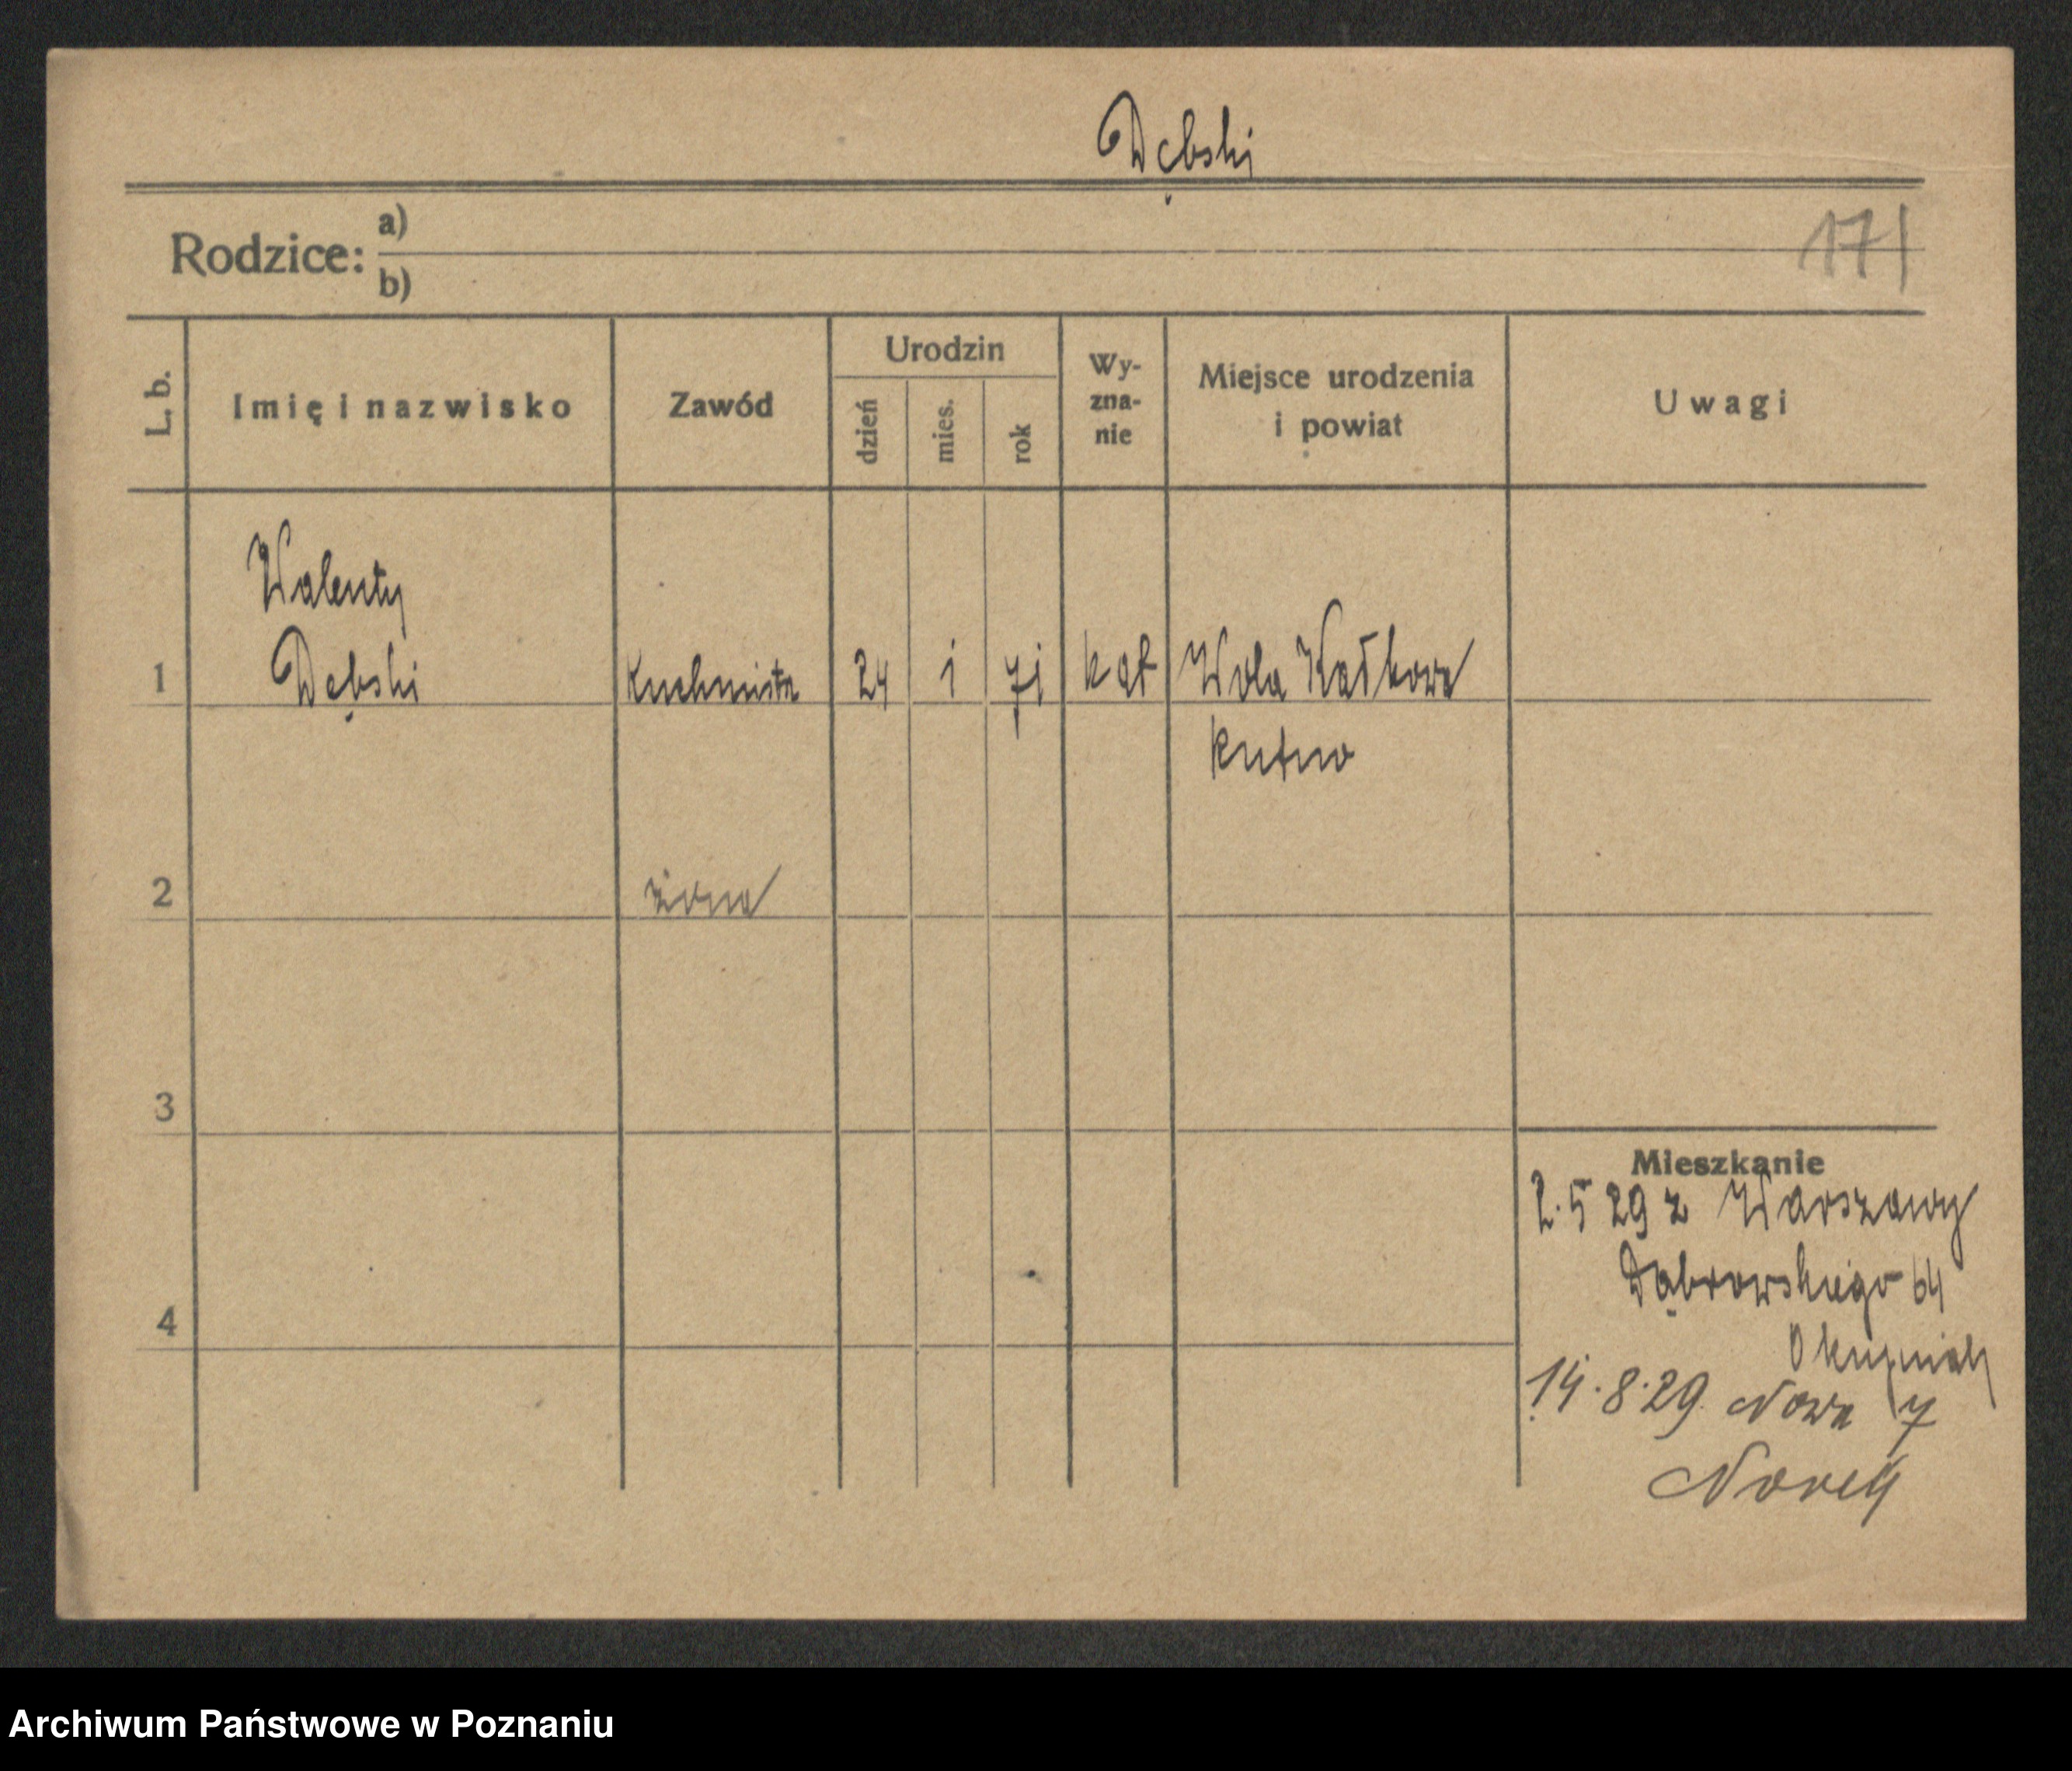 Dębski
171
Rodzice: a)
b)
L. b.
Imię i nazwisko
Zawód
Urodzin
dzień
mies.
rok
Wy-
zna-
nie
Miejsce urodzenia
i powiat
Uwagi
Walenty
1 Dębski kuchmistrz 24 1 71 kat Wola Kałkowa
Kutno
2 żona
3
4
Mieszkanie
2.5 29 z Warszawy
Dąbrowskiego 64
14.8.29. Nowa 7
Archiwum Państwowe w Poznaniu